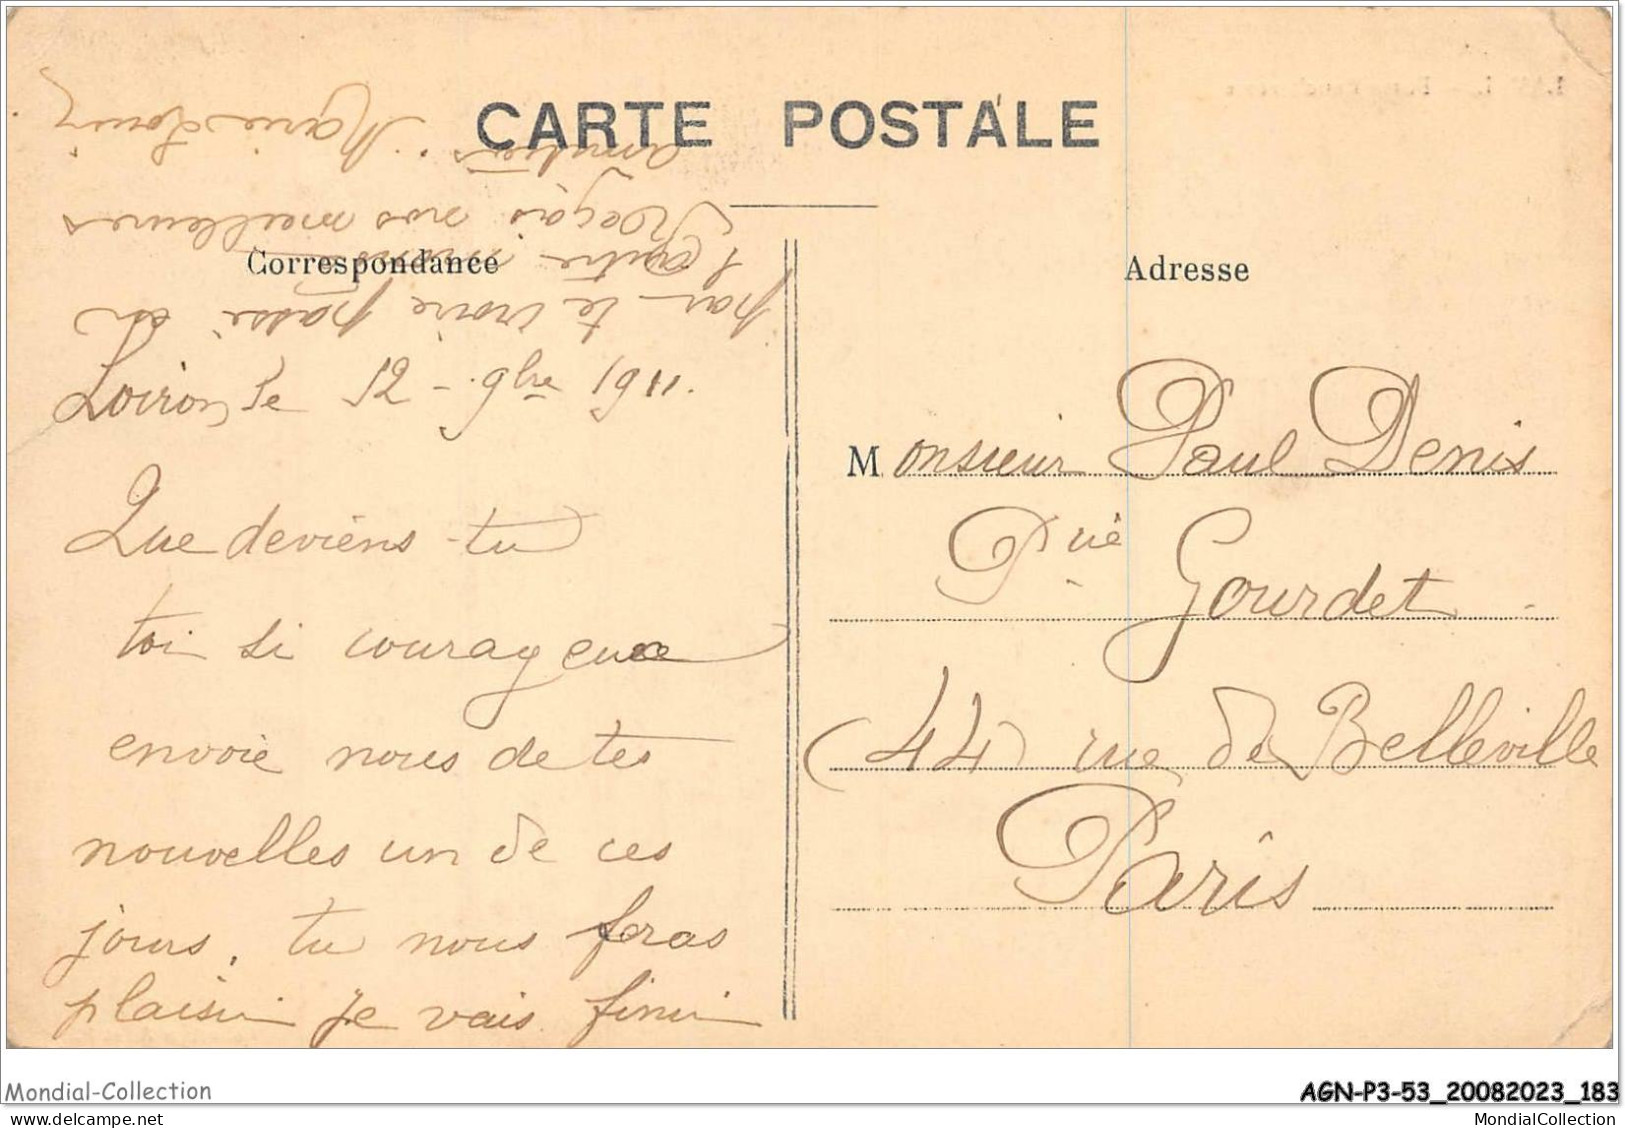 CARTE POSTALE
Correspondance
Adresse
Loiron le 12 - 9bre 1911.
Que deviens-tu
toi si courageux
envoie nous de tes
nouvelles un de ces
jours, tu nous feras
plaisir je vais finir
par te croire passé en
l'autre
Reçois nos meilleures
amitiés. Marie Louise
Monsieur Paul Denis
Gourdet
(44) rue de Belleville
Paris
Mondial-Collection
AGN-P3-53_20082023_183
MondialCollection